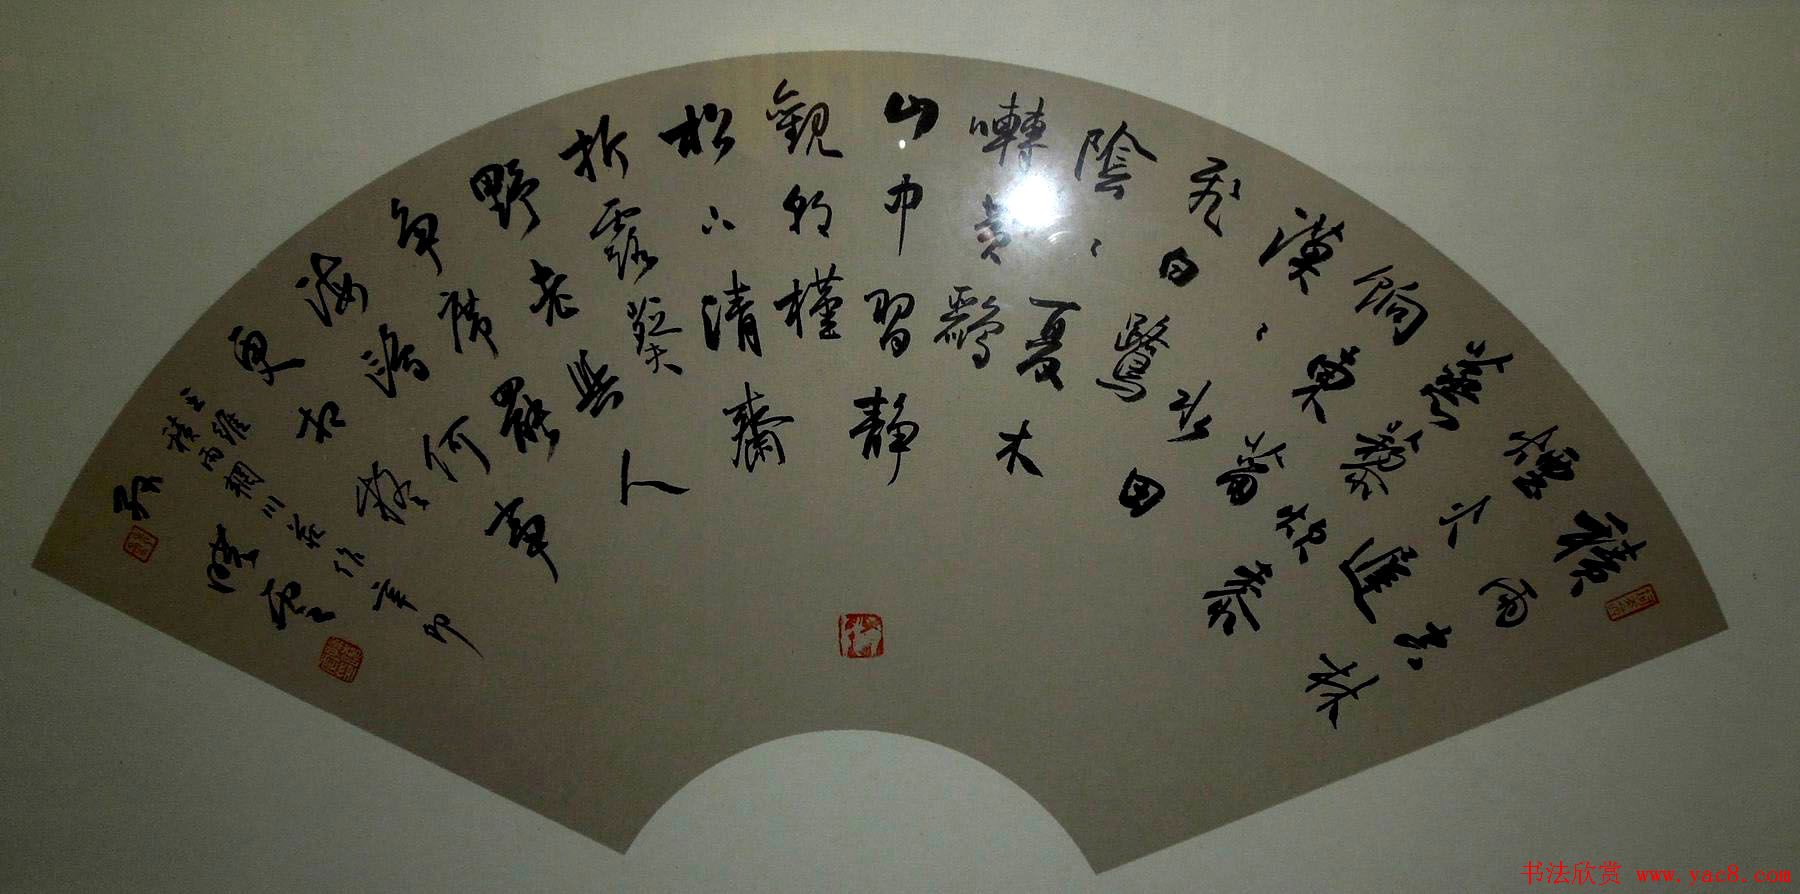 積雨空林
煙火遲
蒸藜炊黍
餉東菑
漠〻水田
飛白鷺
陰〻夏木
囀黃鸝
山中習靜
觀朝槿
松下清齋
折露葵
野老與人
爭席罷
海鷗何事
更相疑
王維
積雨輞川莊作辛卯
书法欣赏 www.yac8.com